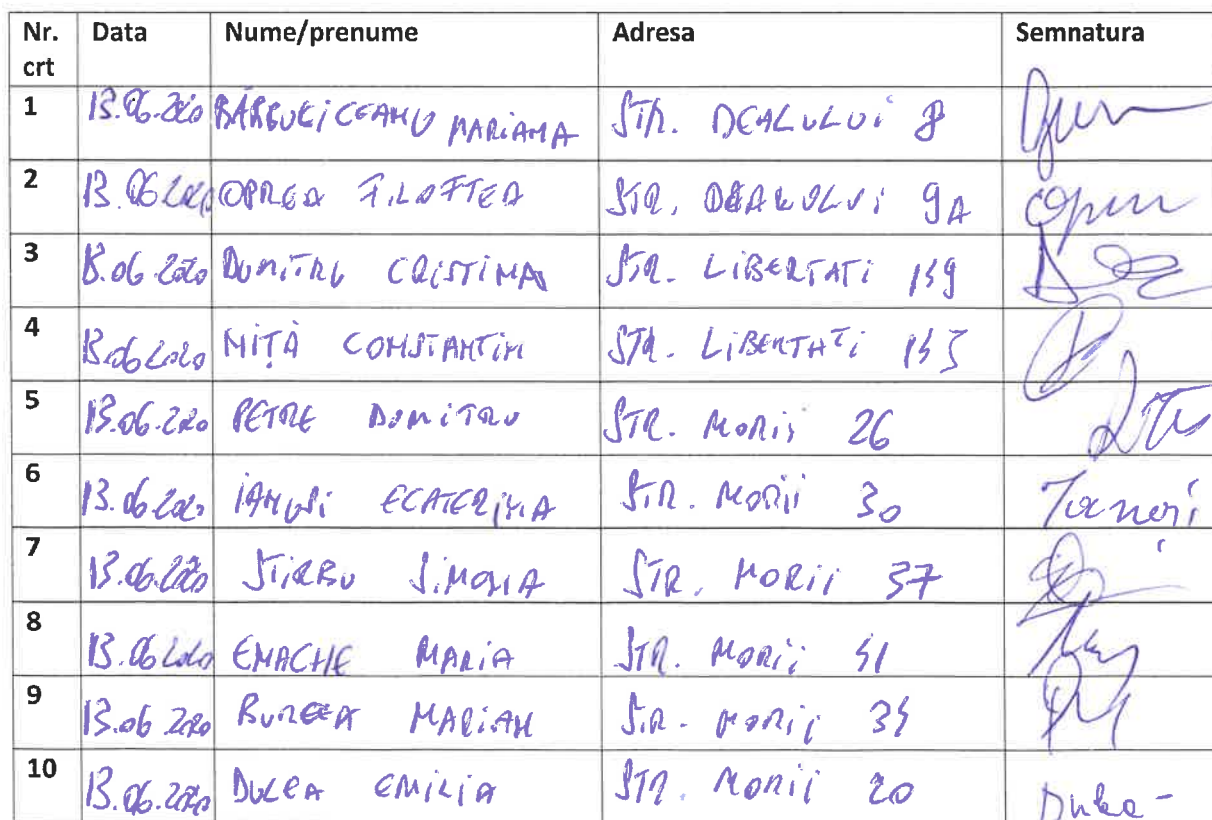 Nr. crt Data Nume/prenume Adresa Semnatura
1 13.06.2020 BĂRBUEICEANU MARIANA STR. DEALULUI 8
2 13.06.2020 OPREA FILOFTEA STR. DEALULUI 9A Opren
3 13.06.2020 DUMITRU CRISTINA STR. LIBERTATI 159
4 13.06.2020 MIȚĂ CONSTANTIN STR. LIBERTATI 155
5 13.06.2020 PETRE DUMITRU STR. MORII 26
6 13.06.2020 IANUSI ECATERINA STR. MORII 30
7 13.06.2020 STIRBU SIMONA STR. MORII 37
8 13.06.2020 ENACHE MARIA STR. MORII 51
9 13.06.2020 MARIAN STR. MORII 35
10 13.06.2020 DULEA EMILIA STR. MORII 20